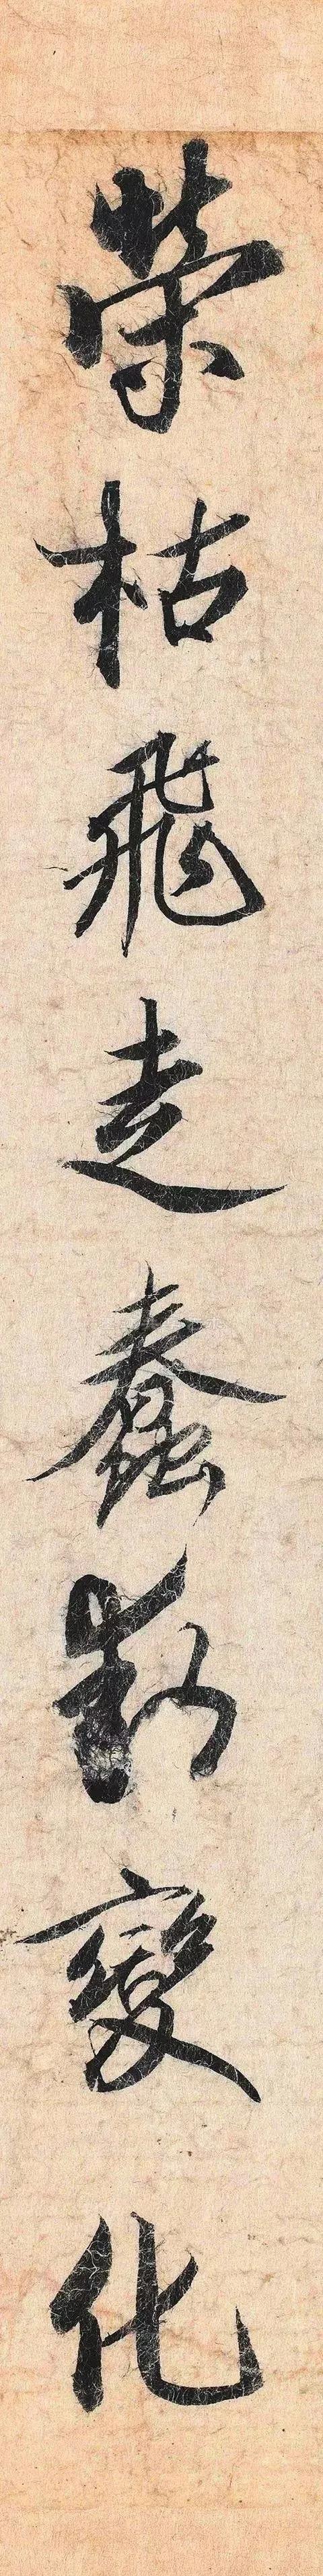 荣枯飛走蠢動變化